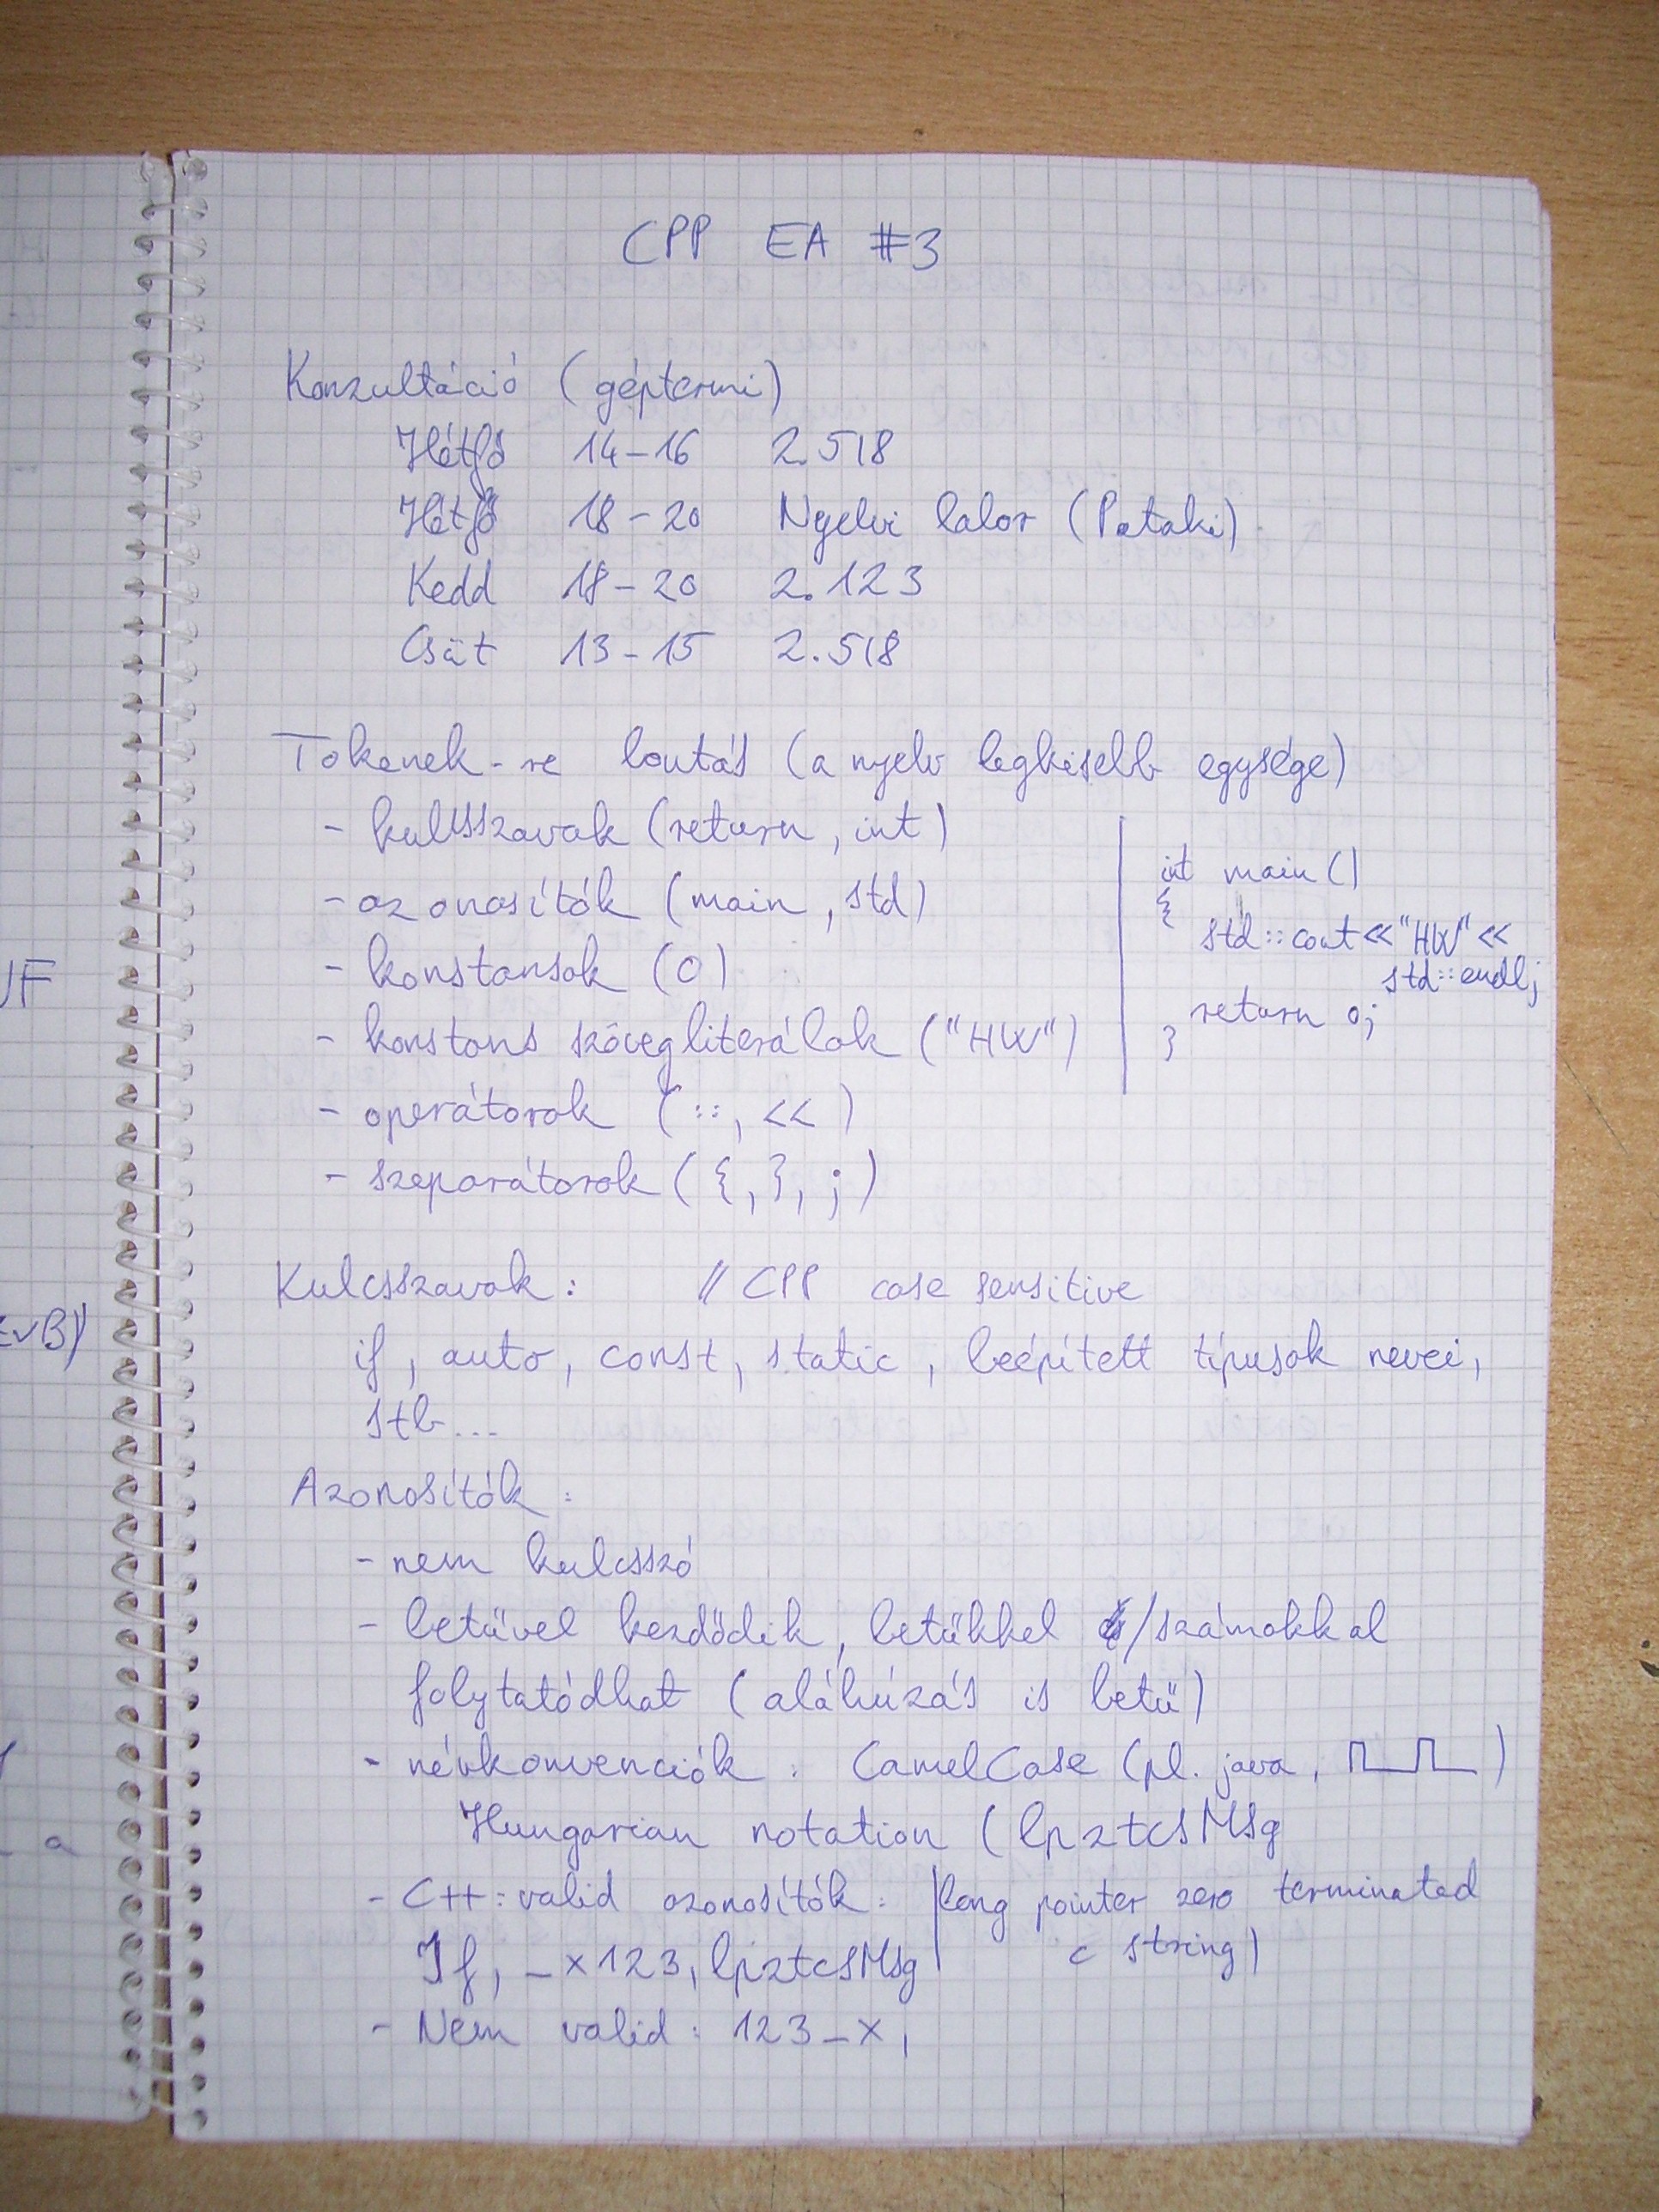 CPP EA #3
Konzultáció (géptermi)
Hétfő 14-16 2.518
Hétfő 18-20 Nyelvi labor (Pataki)
Kedd 18-20 2.123
Csüt 13-15 2.518
Tokenek-re bontás (a nyelv legkisebb egysége)
- kulcsszavak (return, int)
- azonosítók (main, std)
- konstansok (0)
- konstans szövegliterálok ("HW")
- operátorok (::, <<)
- szeparátorok ({, }, ;)
int main()
{
std::cout<<"HW"<<
std::endl;
return 0;
}
Kulcsszavak: // CPP case sensitive
if, auto, const, static, beépített típusok nevei,
stb...
Azonosítók:
- nem kulcsszó
- betűvel kezdődik, betűkkel /számokkal
folytatódhat (aláhúzás is betű)
- névkonvenciók: CamelCase (pl. java, )
Hungarian notation (lpztcsMsg
long pointer zero terminated
c string)
- C++: valid azonosítók:
If, _x123, lpztcsMsg
- Nem valid: 123_x,
UF
EvB)
a